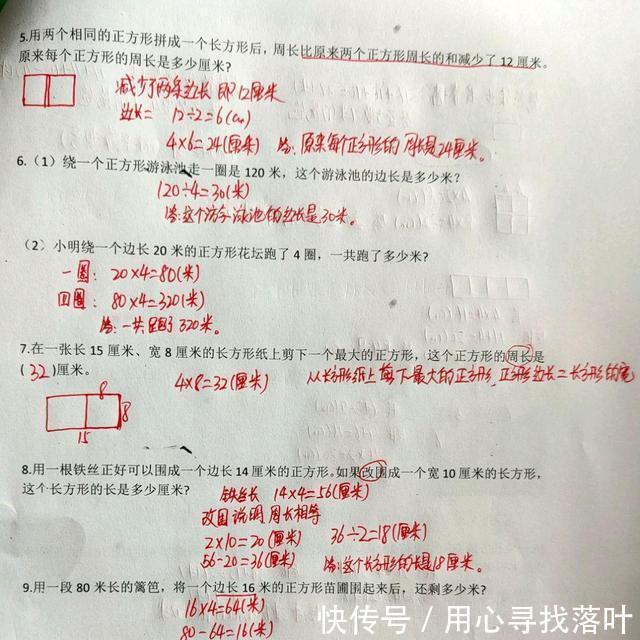 5.用两个相同的正方形拼成一个长方形后，周长比原来两个正方形周长的和减少了12厘米。
原来每个正方形的周长是多少厘米?
减少了两条边长 即12厘米
边长= 12÷2=6(cm)
4×6=24(厘米) 答:原来每个正方形的周长是24厘米。
6.（1）绕一个正方形游泳池走一圈是120米，这个游泳池的边长是多少米?
120÷4=30(米)
答:这个游泳池的边长是30米。
（2）小明绕一个边长20米的正方形花坛跑了4圈，一共跑了多少米?
一圈: 20×4=80(米)
四圈: 80×4=320(米)
答:一共跑了320米。
7.在一张长15厘米、宽8厘米的长方形纸上剪下一个最大的正方形，这个正方形的周长是
(32)厘米。
4×8=32(厘米)
从长方形纸上剪下最大的正方形,正方形边长=长方形的宽
8
8
15
8.用一根铁丝正好可以围成一个边长14厘米的正方形。如果改围成一个宽10厘米的长方形，
这个长方形的长是多少厘米?
铁丝长 14×4=56(厘米)
改围说明周长相等
2×10=20(厘米) 36÷2=18(厘米)
56-20=36(厘米) 答:这个长方形的长是18厘米。
9.用一段80米长的篱笆，将一个边长16米的正方形苗圃围起来后，还剩多少米?
16×4=64(米)
80-64=16(米)
快传号/用心寻找落叶